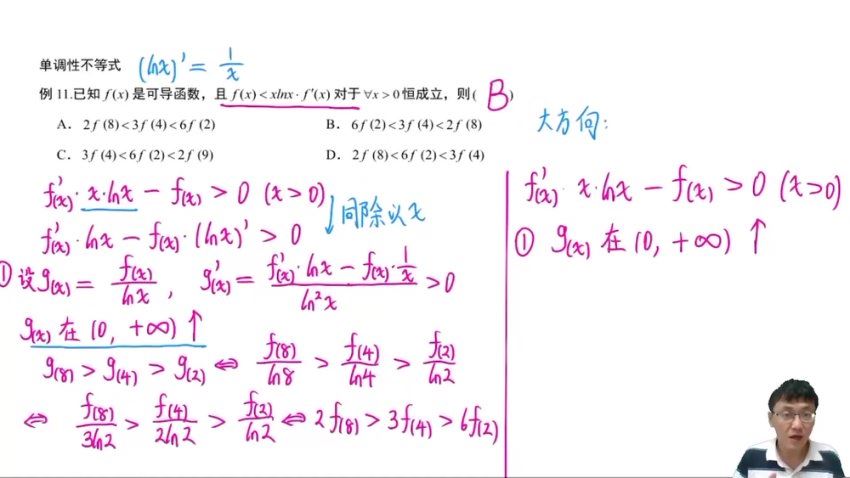 单调性不等式 (lnx)′ = 1/x
例 11.已知 f(x) 是可导函数，且 f(x) < xlnx · f′(x) 对于 ∀x > 0 恒成立，则( B )
A. 2f(8)<3f(4)<6f(2)
B. 6f(2)<3f(4)<2f(8)
C. 3f(4)<6f(2)<2f(9)
D. 2f(8)<6f(2)<3f(4)
f′(x) · x·lnx − f(x) > 0 (x>0)
↓同除以x
f′(x) · lnx − f(x) · (lnx)′ > 0
① 设 g(x) = f(x)/lnx , g′(x) = (f′(x)·lnx − f(x)·1/x)/ln²x > 0
g(x) 在 (0, +∞) ↑
g(8) > g(4) > g(2) ⇔ f(8)/ln8 > f(4)/ln4 > f(2)/ln2
⇔ f(8)/3ln2 > f(4)/2ln2 > f(2)/ln2 ⇔ 2f(8) > 3f(4) > 6f(2)
大方向:
f′(x) · x·lnx − f(x) > 0 (x>0)
① g(x) 在 (0, +∞) ↑